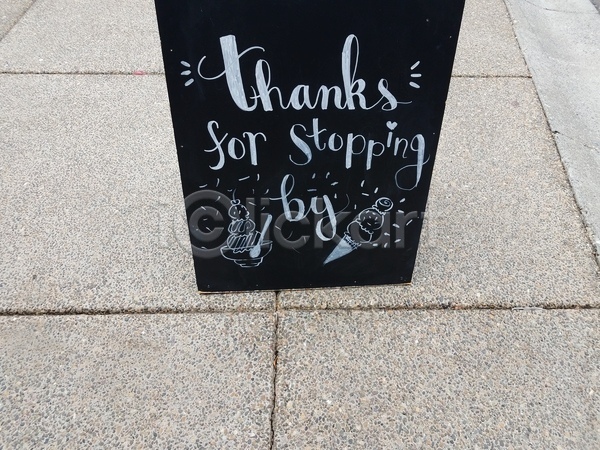 thanks
for stopping
by
iclickart